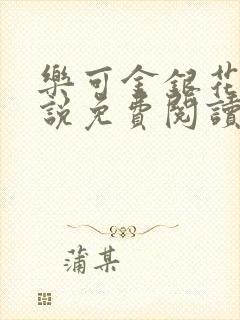 樂可金銀花
說免費閱讀
蒲某